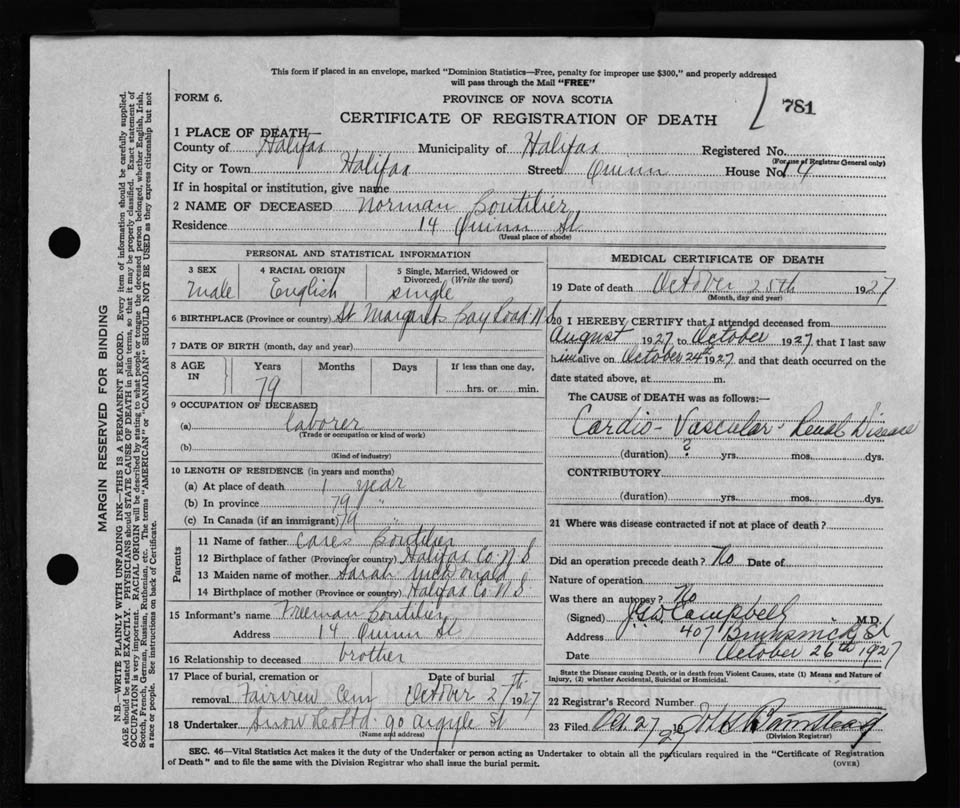 This form if placed in an envelope, marked "Dominion Statistics—Free, penalty for improper use $300," and properly addressed
will pass through the Mail "FREE"
FORM 6.
PROVINCE OF NOVA SCOTIA
781
CERTIFICATE OF REGISTRATION OF DEATH
1 PLACE OF DEATH—
County of Halifax Municipality of Halifax Registered No.
(For use of Registrar General only)
City or Town Halifax Street Quinn House No 14
If in hospital or institution, give name
2 NAME OF DECEASED Norman Boutilier
Residence 14 Quinn St
(Usual place of abode)
PERSONAL AND STATISTICAL INFORMATION
3 SEX 4 RACIAL ORIGIN 5 Single, Married, Widowed or
Divorced. (Write the word)
male English single
6 BIRTHPLACE (Province or country) St Margarets Bay Road N S
7 DATE OF BIRTH (month, day and year)
8 AGE IN Years Months Days If less than one day,
79 hrs. or min.
9 OCCUPATION OF DECEASED
(a) laborer
(Trade or occupation or kind of work)
(b)
(Kind of industry)
10 LENGTH OF RESIDENCE (in years and months)
(a) At place of death 1 year
(b) In province 79 "
(c) In Canada (if an immigrant) 79 "
Parents
11 Name of father Boutilier
12 Birthplace of father (Province or country) Halifax Co N S
13 Maiden name of mother Sarah McDonald
14 Birthplace of mother (Province or country) Halifax Co N S
15 Informant's name Freeman Boutilier
Address 14 Quinn St
16 Relationship to deceased brother
17 Place of burial, cremation or Date of burial
removal Fairview Cem October 27th 1927
18 Undertaker Snow Co Ltd. 90 Argyle St
(Name and address)
MEDICAL CERTIFICATE OF DEATH
19 Date of death October 25th 1927
(Month, day and year)
20 I HEREBY CERTIFY that I attended deceased from
August 1927 to October 1927 that I last saw
him alive on October 24th 1927 and that death occurred on the
date stated above, at m.
The CAUSE of DEATH was as follows:—
Cardio-Vascular-Renal Disease
(duration) ? yrs. mos. dys.
CONTRIBUTORY
(duration) yrs. mos. dys.
21 Where was disease contracted if not at place of death?
Did an operation precede death? No Date of
Nature of operation
Was there an autopsy? No
(Signed) Campbell M.D.
Address 407 Brunswick St
Date October 26th 1927
State the Disease causing Death, or in death from Violent Causes, state (1) Means and Nature of
Injury, (2) whether Accidental, Suicidal or Homicidal.
22 Registrar's Record Number
23 Filed Oct 27 19 27 John
(Division Registrar)
SEC. 46—Vital Statistics Act makes it the duty of the Undertaker or person acting as Undertaker to obtain all the particulars required in the "Certificate of Registration
of Death" and to file the same with the Division Registrar who shall issue the burial permit.
(OVER)
MARGIN RESERVED FOR BINDING
N.B.—WRITE PLAINLY WITH UNFADING INK—THIS IS A PERMANENT RECORD. Every item of information should be carefully supplied.
AGE should be stated EXACTLY. PHYSICIANS should STATE CAUSE OF DEATH in plain terms, so that it may be properly classified. Exact statement of
OCCUPATION is very important. RACIAL ORIGIN will be described by stating to what people or tongue the deceased person belonged, whether English, Irish,
Scotch, French, German, Russian, Ruthenian, etc. The terms "AMERICAN" or "CANADIAN" SHOULD NOT BE USED as they express citizenship but not
a race or people. See instructions on back of Certificate.